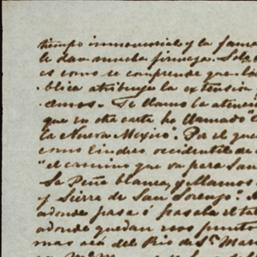 tiempo inmemorial y la fama
le dan mucha firmeza. Sob
es como se comprende que la
blica atribuye la extensión
Te llamo la atenci
que en otra carta he llamado
la Nuevo Mexico". Por el que
como linderos occidental de
"el camino que va para San
La Peña blanca, y llamos
y Sierra de San Lorenzo. A
adonde pasa ó pasaba el
adonde quedan esos puntos
mas acá del Rio de Sn. Mar